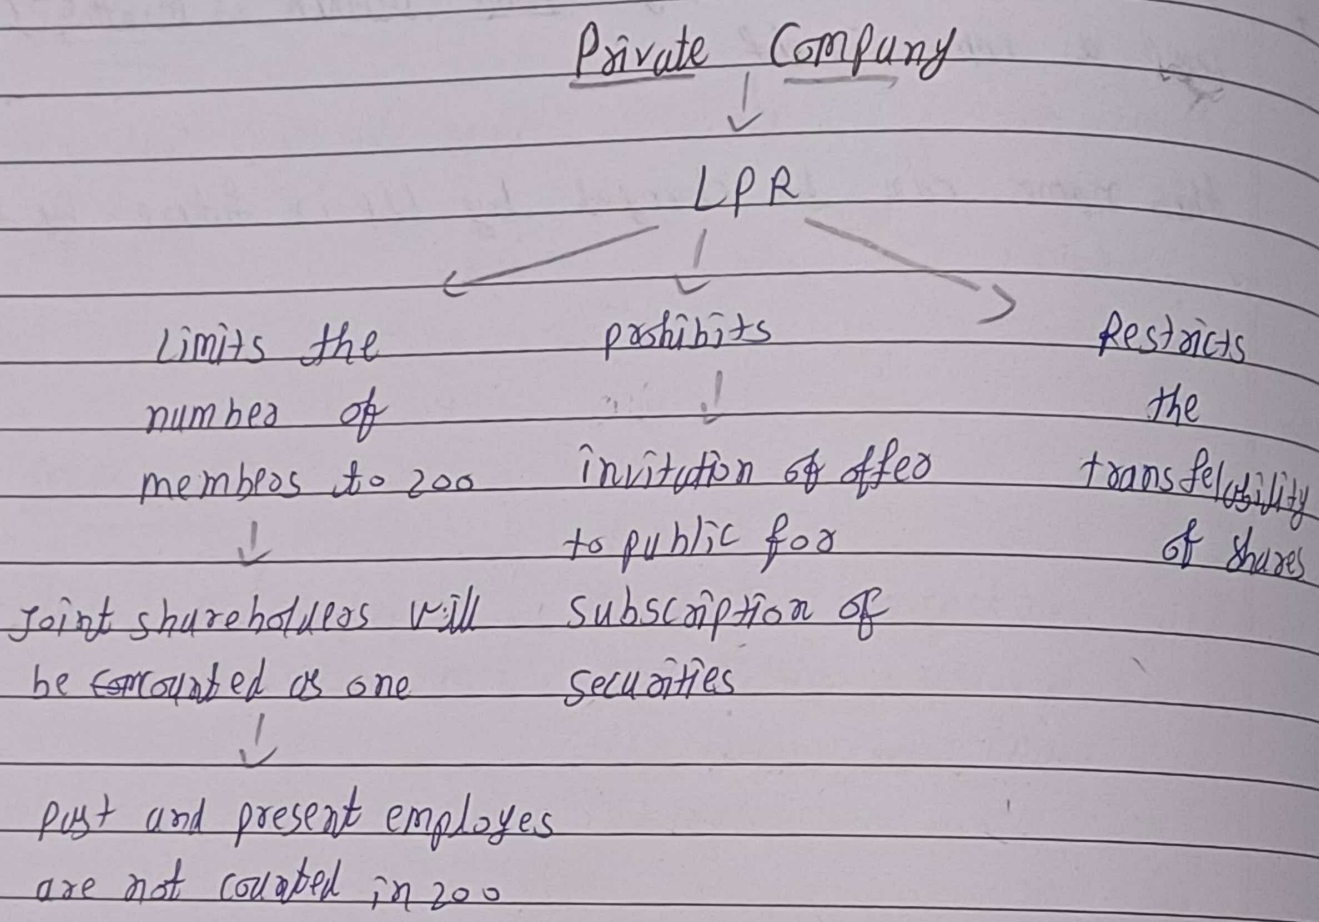 Private Company
LPR
Limits the
number of
members to 200
Joint shareholders will
be counted as one
Past and present employes
are not counted in 200
prohibits
invitation of offer
to public for
subscription of
securities
Restricts
the
transferability
of shares